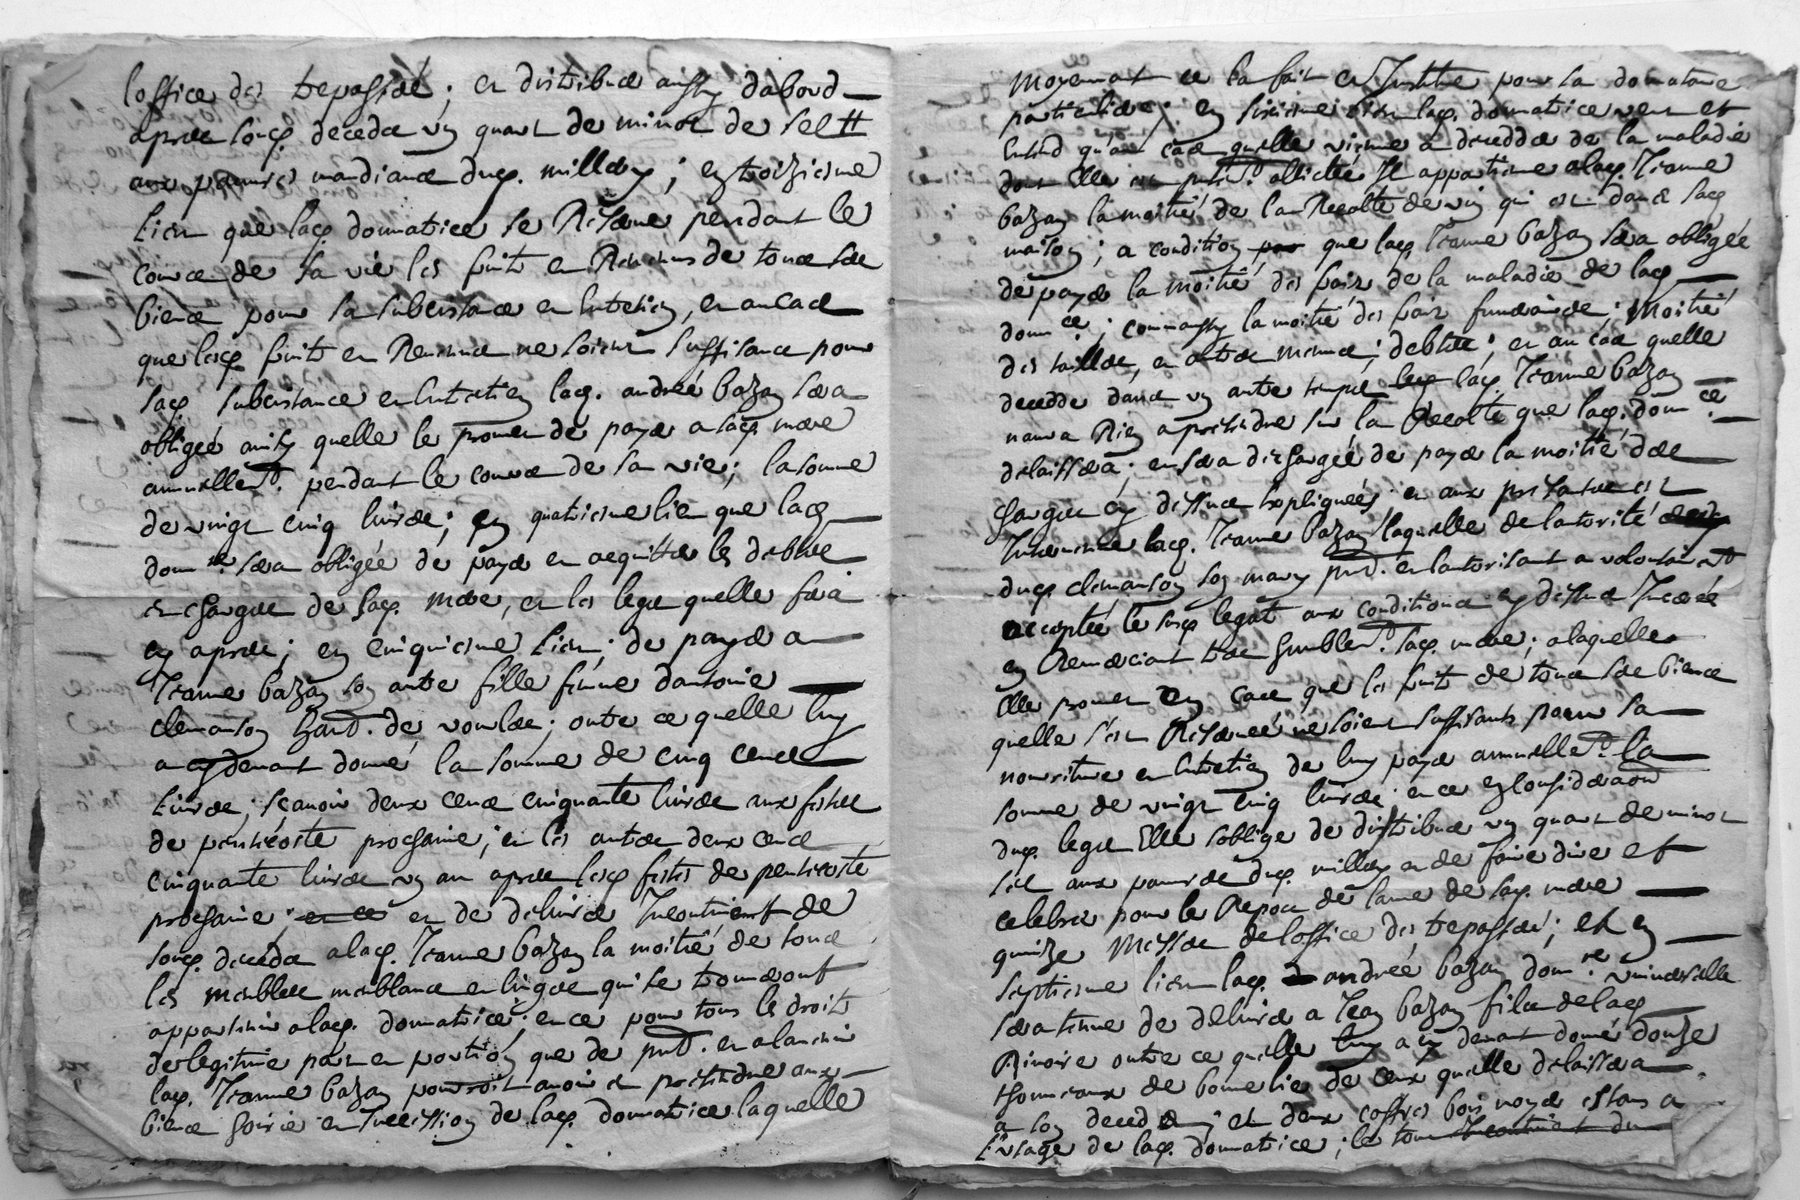 loffice des trepassés ; et distribuer aussy dabord
apres songt decedz un quart de minot de sel #
aux pauvres mandiants dugt millery ; en troizieme
lieu que lagt donnatrice se reserve pendant le
cours de sa vie les fruits et revenus de tous ses
biens pour sa subcistance et entretien, et au cas
que lesgt fruits et revenus ne soient suffisants pour
sagt subcistance et entretien lagt. andrée bazan sera
obligée ainsy quelle le promet de payer a sagt mere
annuellemt. pendant le cours de sa vie ; la somme
de vingt cinq livres ; en quatriesme lieu que lagt
donre sera obligée de payer et acquitter les debtes
et charges de sagt. mere, et les legts quelle fera
cy apres ; en cinquiesme lieu ; de payer a
Jeanne bazan son autre fille femme dantoine
clemanson hant. de vourles ; outre ce quelle luy
a cy devant donné la somme de cinq cents
livres ; sçavoir deux cents cinquante livres aux festes
de penthecoste prochaine ; et les autres deux cents
cinquante livres un an apres lesgt festes de penthecoste
prochaine ; et ce et de delivrer Incontinent de
songt. decedz a lagt. Jeanne bazan la moitié de tous
les meubles meublants et linges qui se trouveront
appartenir a lagt. donnatrice ; et ce pour tous les droits
de legitime part et portion que de pntt. et a lavenir
lagt. Jeanne bazan pourroit avoir et pretendre aux
biens hoirie et succession de lagt. donnatrice laquelle
moyennant ce la fait et Institue pour sa donnataire
particuliere ; en sixiesme lieu lagt. donnatrice veut et
entend qu'au cas quelle vienne a deceder de la maladie
dont elle est pntt. allictée Il appartienne a lagt. Jeanne
bazan la moitié de la Recolte de vin qui est dans sagt
maison ; a condition par que lagt Jeanne bazan sera obligée
de payer la moitié des frais de la maladie de lagt
donnce ; comm aussy la moitié des frais funeraires ; moitié
des tailles, et autres menues debtes ; et au cas quelle
decedde dans un autre temps lesgt lagt. Jeanne bazan
naura Rien a pretendre sur la Recolte que lagt. donnce
delaissera ; et sera dechargée de payer la moitié des
charges cy dessus expliquées et aux presantes est
Intervenue lagt. Jeanne bazan laquelle de lautorité
dugt clemanson son mary pntt. et lautorisant a volontairemt
acceptée le susgt legat aux conditions cy dessus Inserée
en Remerciant tres humblemt. sagt. mere ; a laquelle
elle promet en cas que les fruits de tous ses biens
quelle s'est Reservée ne soient suffisants pour sa
nourriture et entretien de luy payer annuellemt. la
somme de vingt cinq livres et ce en consideraon
dugt. legts elle soblige de distribuer un quart de minot
sel aux pauvres dugt. millery et de faire dire et
celebrer pour le Repos de lame de sagt. mere
quinze messes de loffice des trepassés ; et en
septiesme lieu lagt. andrée bazan donre. universelle
sera tenue de delivrer a Jean bazan fils de lagt
Rivoire outre ce quelle luy a cy devant donné douze
thonneaux de bonne lie de ceux quelle delaissera
a son decedz ; et deux coffres bois noyer estans a
l'usage de lagt. donnatrice ; le tout Incontinent du